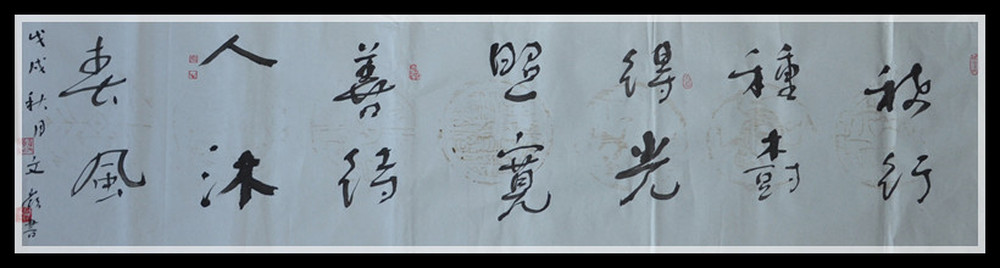 稀行
種樹
得光
照寬
善待
人沐
春風
戊戌秋月文書